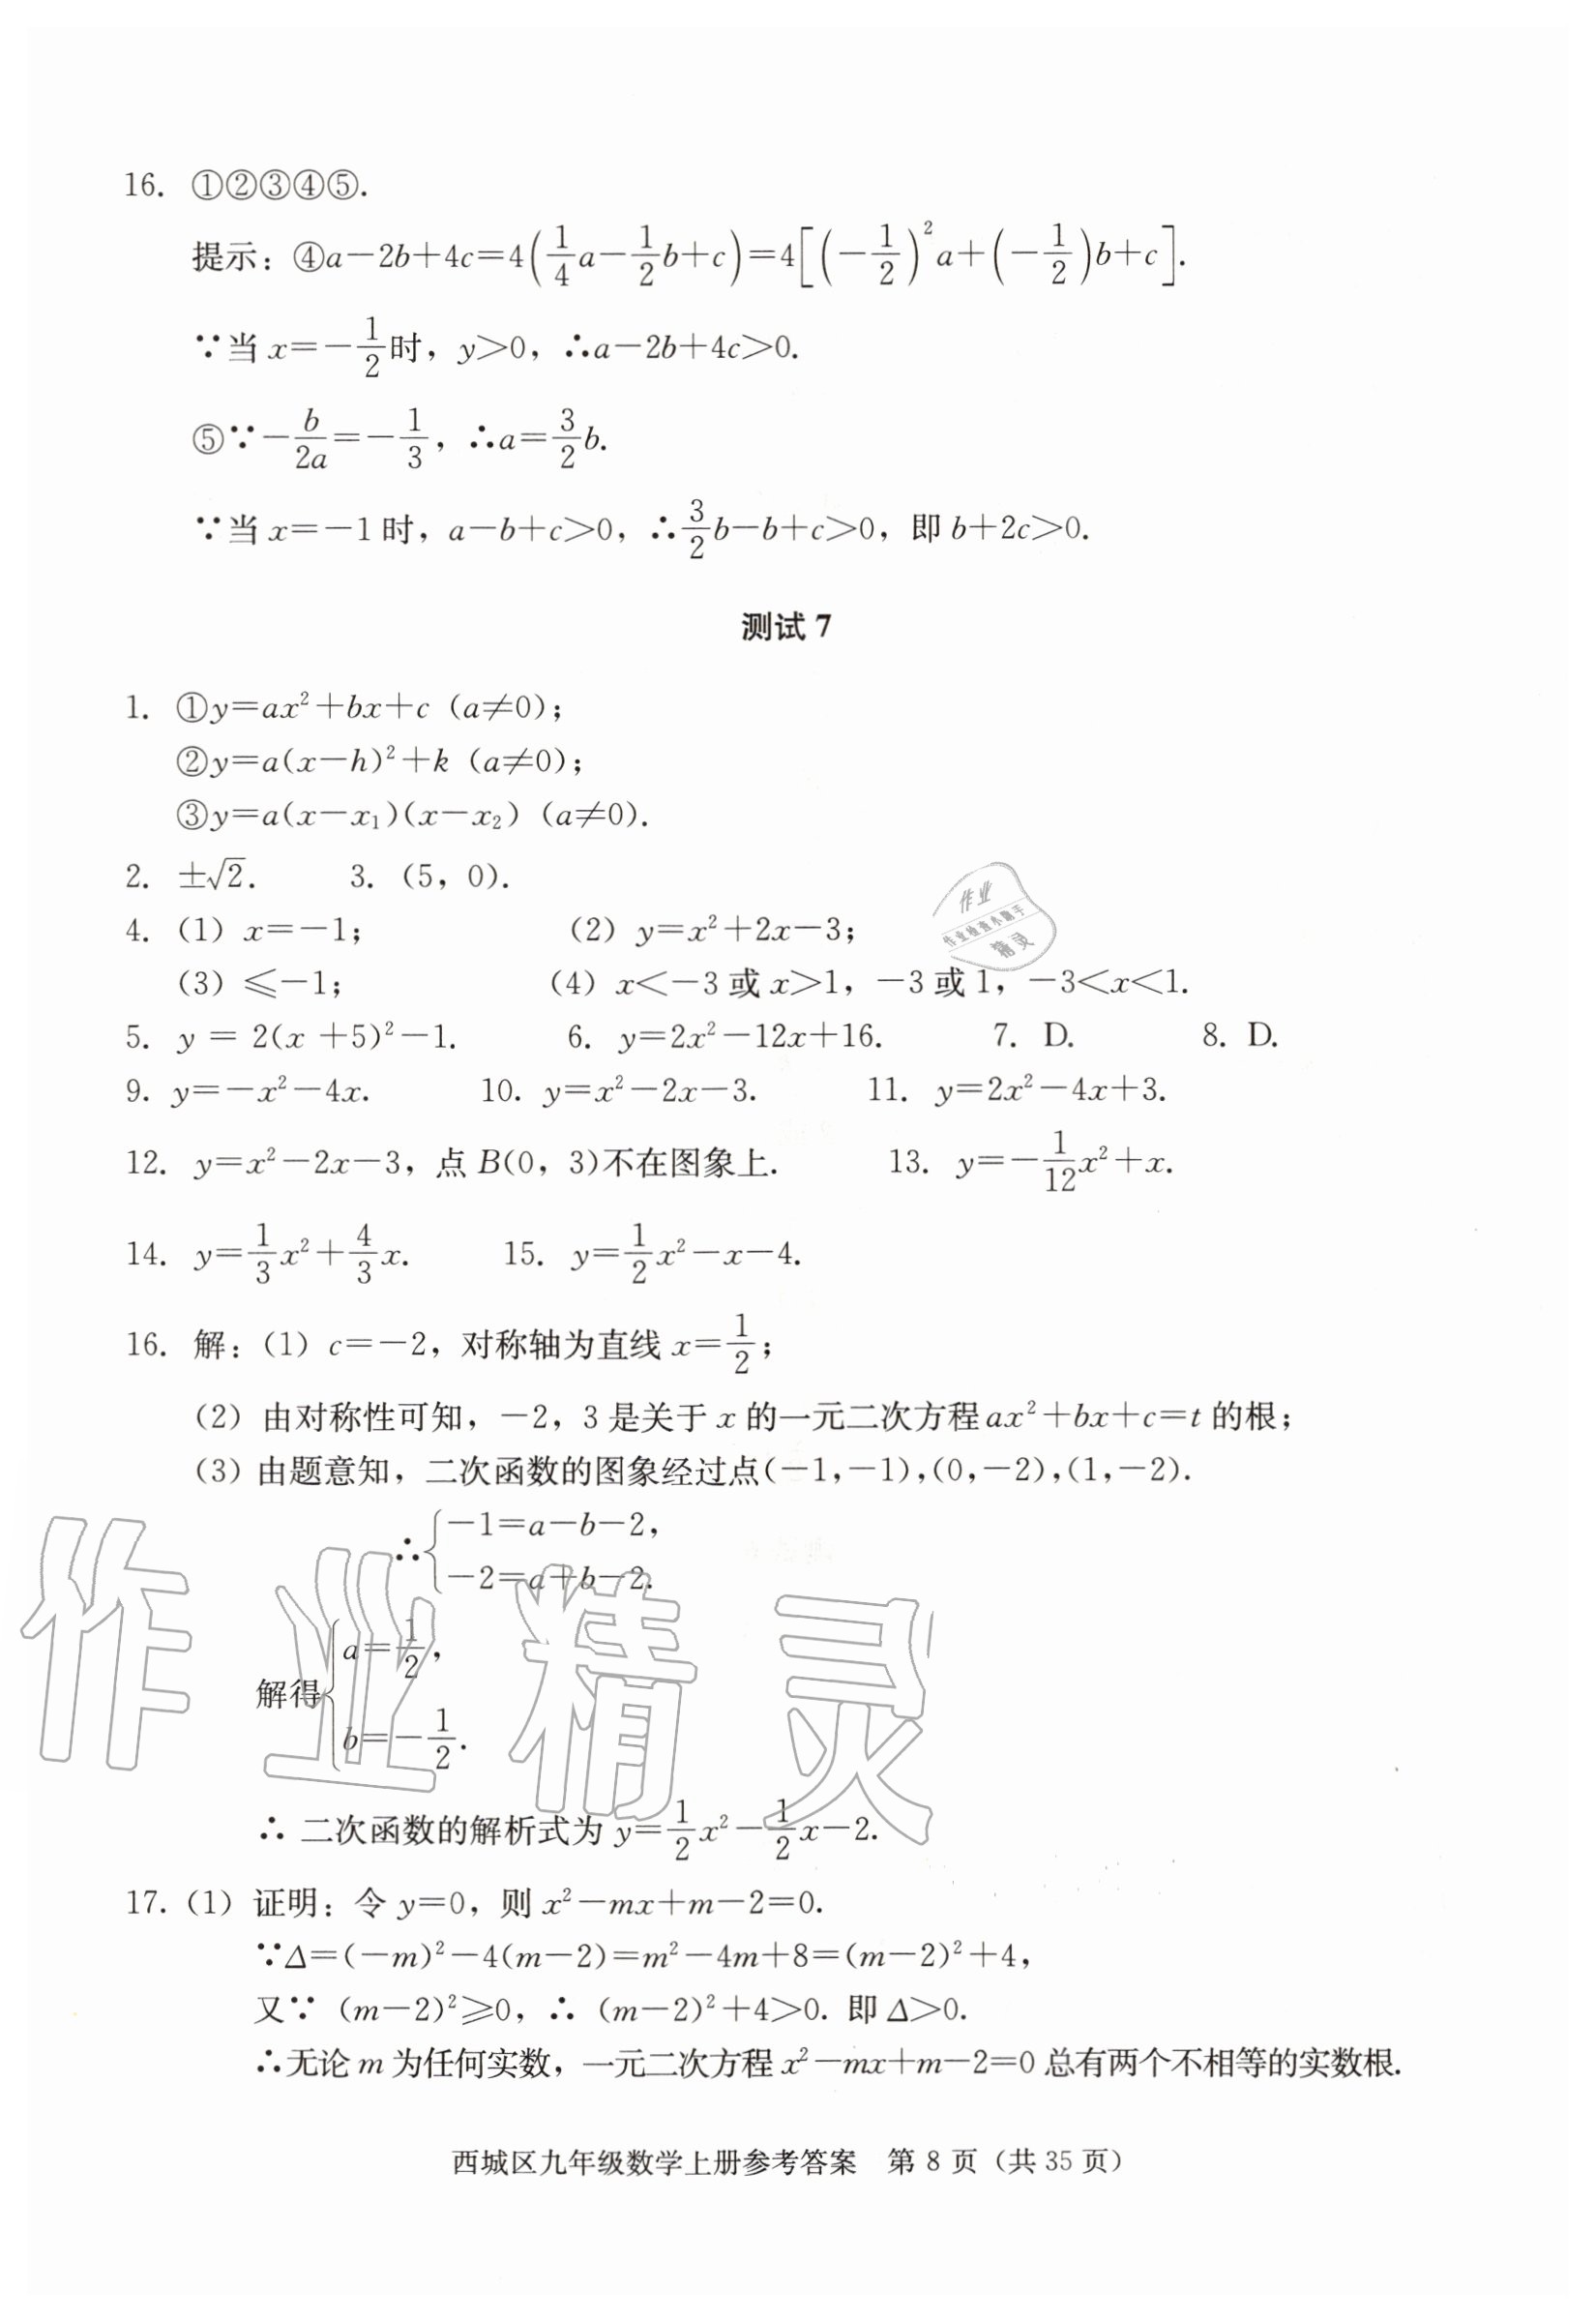 16. ①②③④⑤.
提示：④a－2b＋4c＝4(1/4a－1/2b＋c)＝4[(－1/2)²a＋(－1/2)b＋c].
∵当 x＝－1/2时，y＞0，∴a－2b＋4c＞0.
⑤∵－b/2a＝－1/3，∴a＝3/2b.
∵当 x＝－1 时，a－b＋c＞0，∴3/2b－b＋c＞0，即 b＋2c＞0.
测试 7
1. ①y＝ax²＋bx＋c（a≠0）；
②y＝a(x－h)²＋k（a≠0）；
③y＝a(x－x₁)(x－x₂)（a≠0）.
2. ±√2. 3.（5，0）.
4.（1）x＝－1； （2）y＝x²＋2x－3；
（3）≤－1； （4）x＜－3 或 x＞1，－3 或 1，－3＜x＜1.
5. y ＝ 2(x ＋5)²－1. 6. y＝2x²－12x＋16. 7. D. 8. D.
9. y＝－x²－4x. 10. y＝x²－2x－3. 11. y＝2x²－4x＋3.
12. y＝x²－2x－3，点 B(0，3)不在图象上. 13. y＝－1/12x²＋x.
14. y＝1/3x²＋4/3x. 15. y＝1/2x²－x－4.
16. 解：（1）c＝－2，对称轴为直线 x＝1/2；
（2）由对称性可知，－2，3 是关于 x 的一元二次方程 ax²＋bx＋c＝t 的根；
（3）由题意知，二次函数的图象经过点(－1，－1)，(0，－2)，(1，－2).
∴{－1＝a－b－2，
－2＝a＋b－2.
解得{a＝1/2，
b＝－1/2.
∴ 二次函数的解析式为 y＝1/2x²－1/2x－2.
17.（1）证明：令 y＝0，则 x²－mx＋m－2＝0.
∵Δ＝(－m)²－4(m－2)＝m²－4m＋8＝(m－2)²＋4，
又∵ (m－2)²≥0，∴ (m－2)²＋4＞0. 即 Δ＞0.
∴无论 m 为任何实数，一元二次方程 x²－mx＋m－2＝0 总有两个不相等的实数根.
西城区九年级数学上册参考答案 第 8 页（共 35 页）
作业
作业检查小助手
精灵
作业精灵